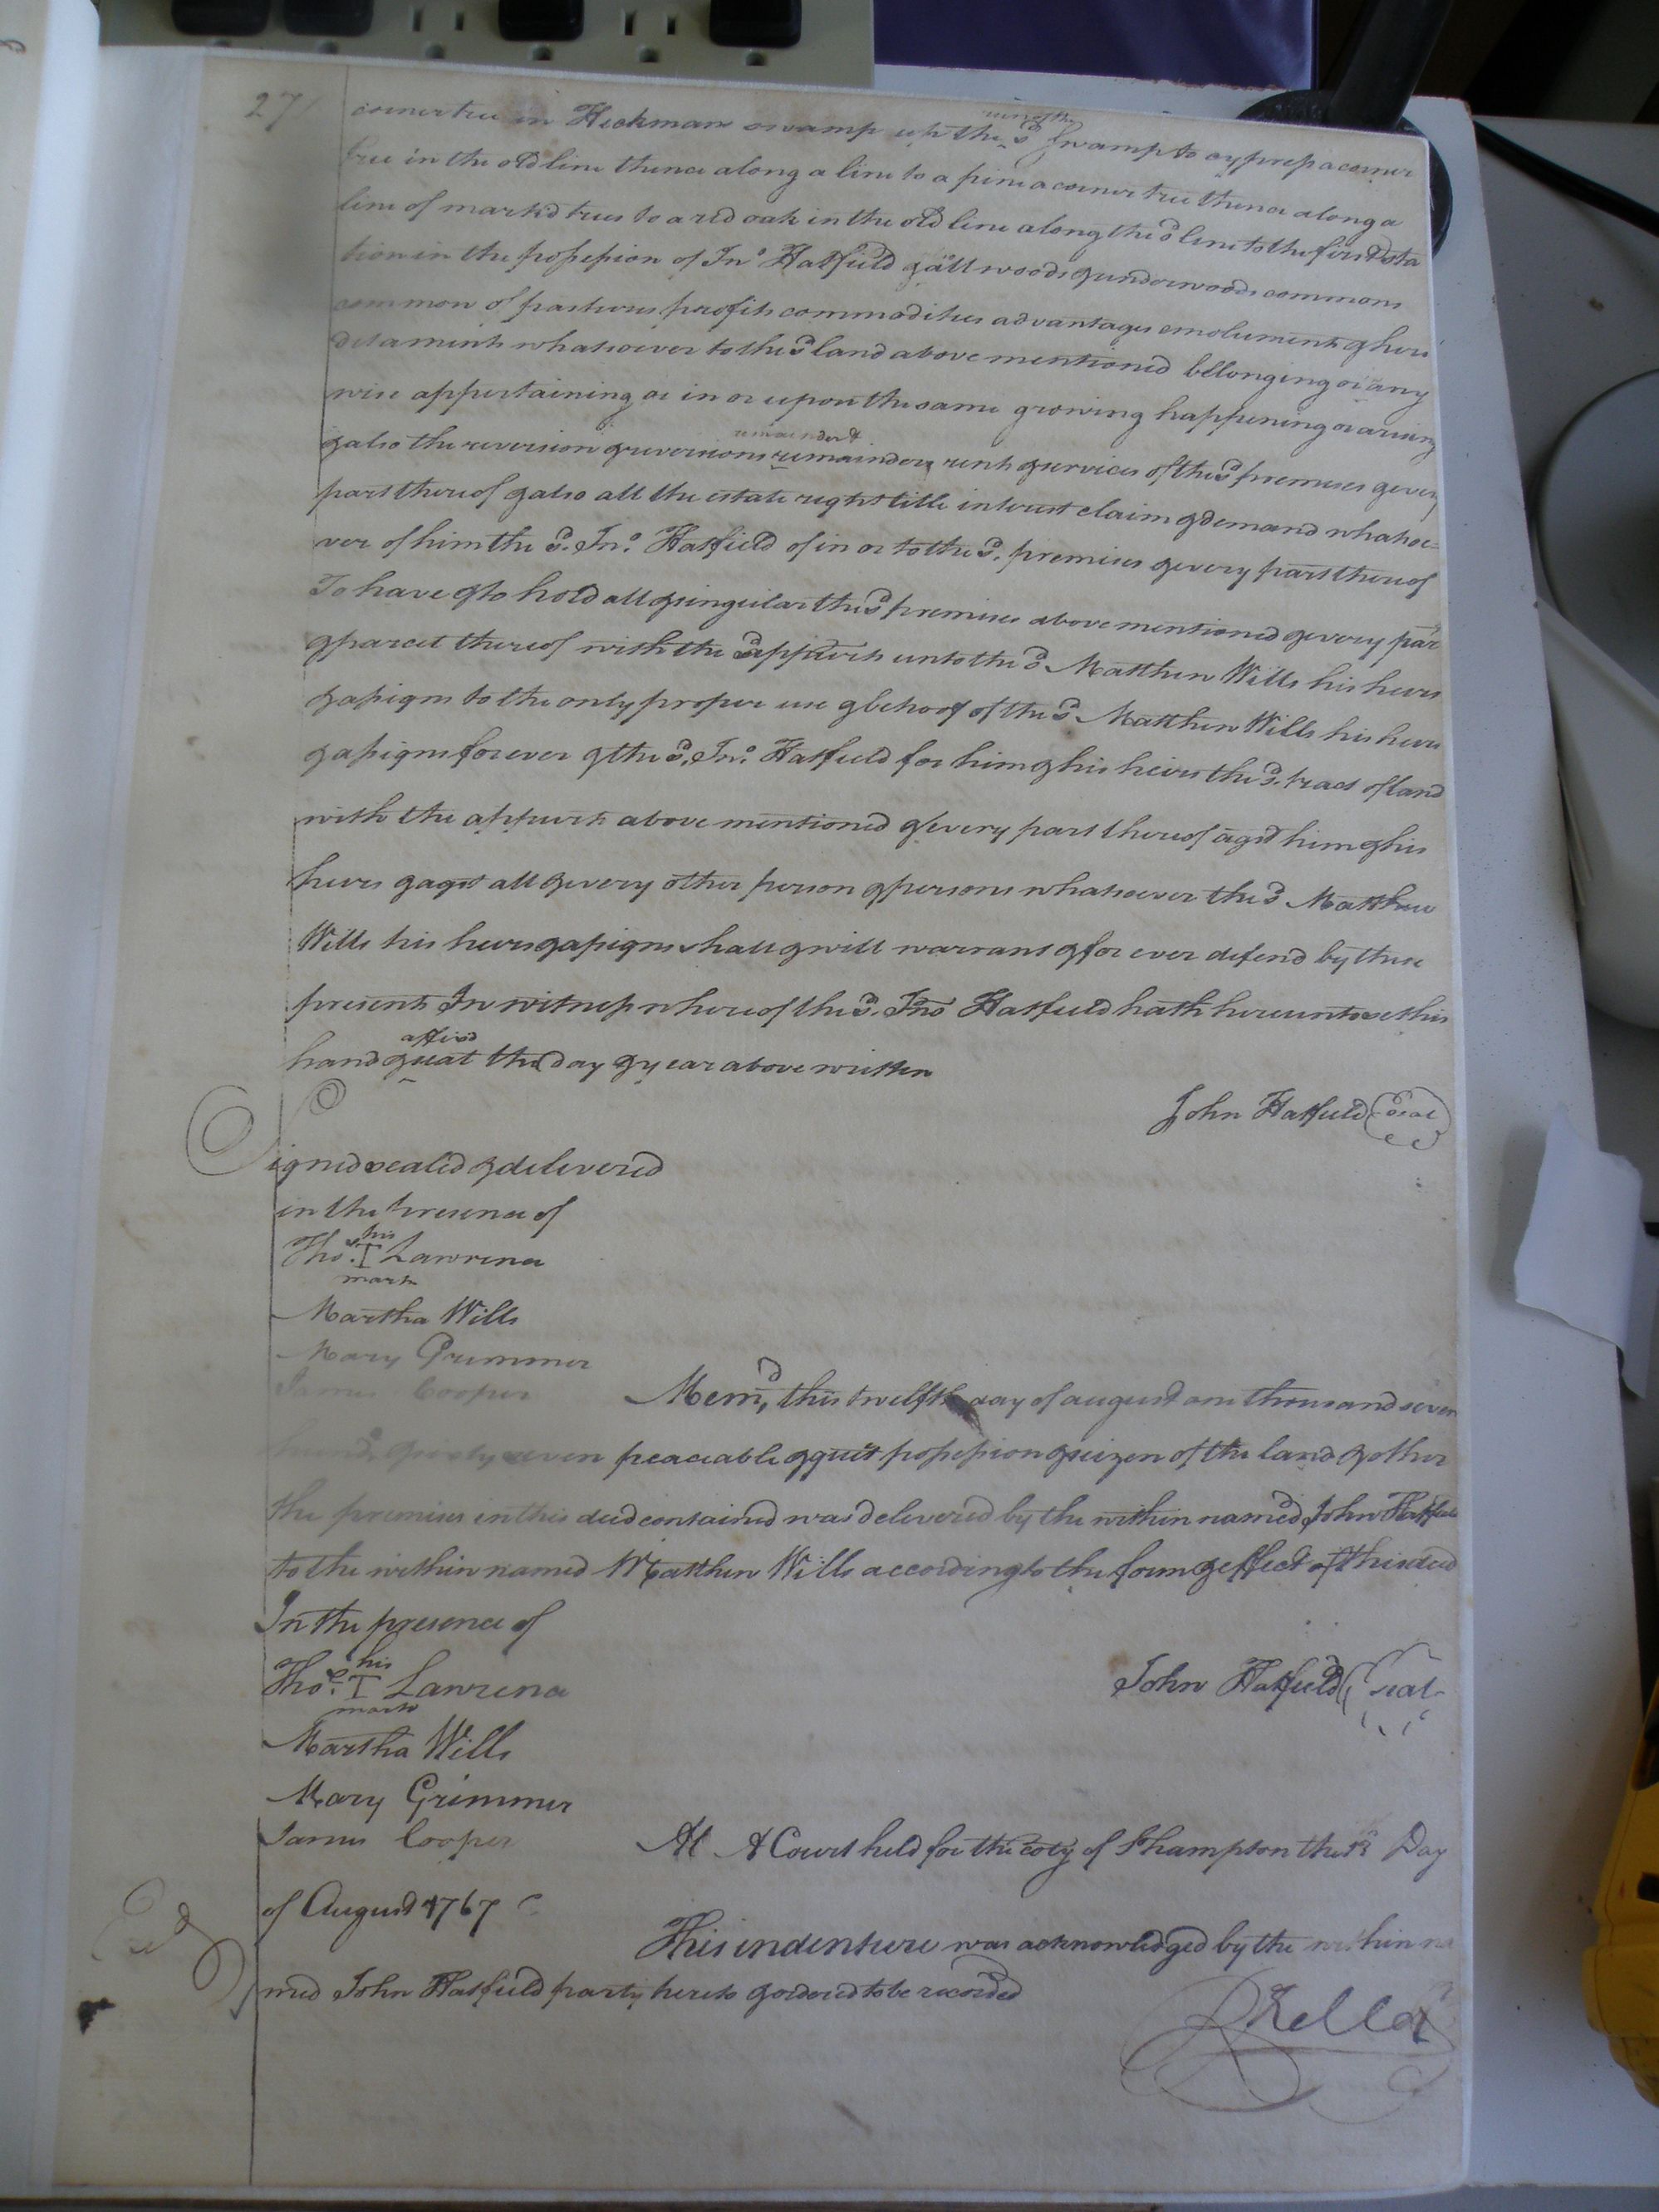 27
corner tree in Heckmans swamp up the run of the sd. Swamp to a cypress a corner
tree in the old line thence along a line to a pine a corner tree thence along a
line of markd trees to a red oak in the old line along the sd line to the first sta
tion in the possession of Jno Hatfield & all woods & underwoods commons
common of pastures profits commodities advantages emoluments & here
detaments whatsoever to the sd land above mentioned bellonging or any
wise appertaining or in or upon the same growing happening or arising
& also the reversion & reversions remainder & remainders rents & services of the sd premises & every
part thereof & also all the estate right title interest claim & demand whatsoe=
ver of him the sd. Jno. Hatfield of in or to the sd. premises & every part thereof
To have & to hold all & singular the sd premises above mentioned & every par
& parcel thereof with the sd appurts unto the sd Matthew Wills his heirs
& assigns to the only proper use & behoof of the sd Matthew Wills his heirs
& assigns forever & the sd. Jno. Hatfield for him & his heirs the sd. tract of land
with the appurts above mentioned & every part thereof agst him & his
heirs & agst all & every other person & persons whatsoever the sd Matthew
Wills his heirs & assigns shall & will warrant & for ever defend by these
presents In witness whereof the sd. Jno Hatfield hath hereunto set his
hand & seal affixd the day & year above written
John Hatfield Seal
Signed sealed & delivered
in the presence of
Thos. his T mark Lawrence
Martha Wills
Mary Grimmer
James Cooper
Memd, this twelfth day of august one thousand seven
hundd & sixty seven peaceable & quiet possession & seizen of the land & other
the premises in this deed contained was delivered by the within named John Hatfield
to the within named Matthew Wills according to the form & effect of this deed
In the presence of
Thos. his T mark Lawrence
John Hatfield Seal
Martha Wills
Mary Grimmer
James Cooper
At A Court held for the coty of Shampton the 13 Day
of August 1767
This indenture was acknowledged by the within na
med John Hatfield party hereto & ordered to be recorded
Exd
R Kello